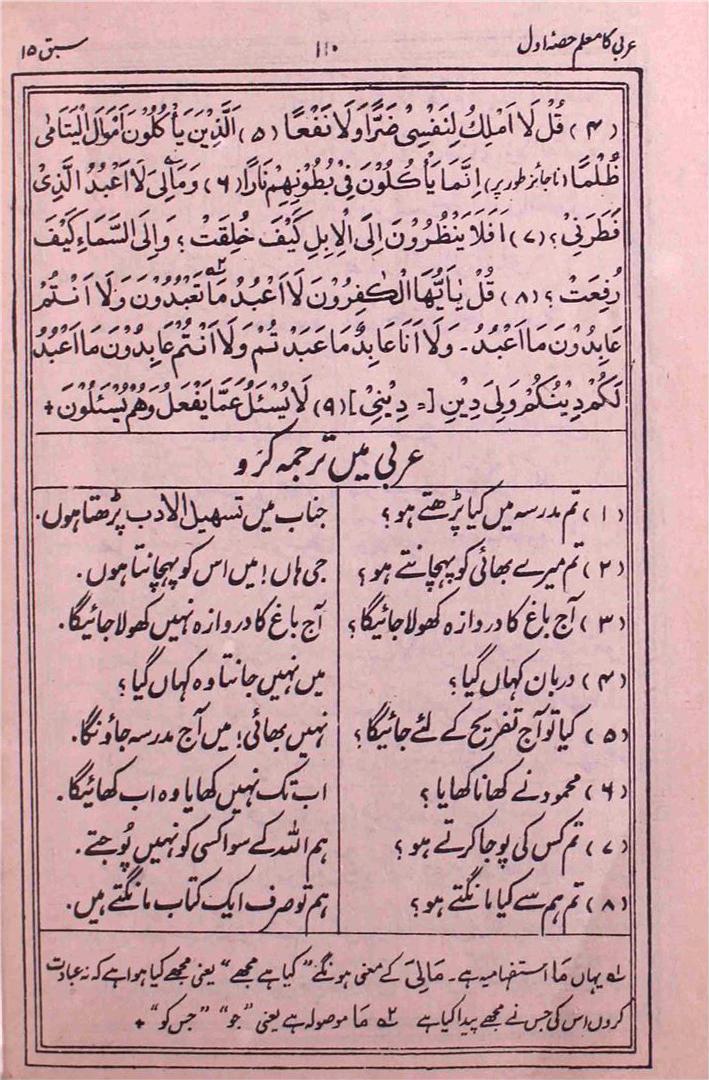 عربی کا معلم حصۂ اول ۱۱۰ سبق ۱۵
(۴) قُلْ لَا اَمْلِكُ لِنَفْسِیْ ضَرًّا وَلَا نَفْعًا (۵) اَلَّذِیْنَ یَأْكُلُوْنَ اَمْوَالَ الْیَتَامٰی
ظُلْمًا (ناجائز طور پر) اِنَّمَا یَأْكُلُوْنَ فِیْ بُطُوْنِهِمْ نَارًا (۶) وَمَا لِیَ ؎۱ لَا اَعْبُدُ الَّذِیْ
فَطَرَنِیْ؟ (۷) اَفَلَا یَنْظُرُوْنَ اِلَی الْاِبِلِ كَیْفَ خُلِقَتْ؟ وَاِلَی السَّمَاءِ كَیْفَ
رُفِعَتْ؟ (۸) قُلْ یٰاَیُّهَا الْكٰفِرُوْنَ لَا اَعْبُدُ مَا ؎۲ تَعْبُدُوْنَ وَلَا اَنْتُمْ
عَابِدُوْنَ مَا اَعْبُدُ۔ وَلَا اَنَا عَابِدٌ مَا عَبَدْتُمْ وَلَا اَنْتُمْ عَابِدُوْنَ مَا اَعْبُدُ
لَكُمْ دِیْنُكُمْ وَلِیَ دِیْنِ [= دِیْنِیْ] (۹) لَا یُسْئَلُ عَمَّا یَفْعَلُ وَهُمْ یُسْئَلُوْنَ +
عربی میں ترجمہ کرو
(۱) تم مدرسہ میں کیا پڑھتے ہو؟ جناب میں تسہیل الادب پڑھتا ہوں۔
(۲) تم میرے بھائی کو پہچانتے ہو؟ جی ہاں! میں اس کو پہچانتا ہوں۔
(۳) آج باغ کا دروازہ کھولا جائیگا؟ آج باغ کا دروازہ نہیں کھولا جائیگا۔
(۴) دربان کہاں گیا؟ میں نہیں جانتا وہ کہاں گیا؟
(۵) کیا تو آج تفریح کے لئے جائیگا؟ نہیں بھائی! میں آج مدرسہ جاؤنگا۔
(۶) محمود نے کھانا کھایا؟ اب تک نہیں کھایا وہ اب کھائیگا۔
(۷) تم کس کی پوجا کرتے ہو؟ ہم اللہ کے سوا کسی کو نہیں پُوجتے۔
(۸) تم ہم سے کیا مانگتے ہو؟ ہم تو صرف ایک کتاب مانگتے ہیں۔
؎۱ یہاں مَا استفہامیہ ہے۔ مَالِیَ کے معنی ہونگے "کیا ہے مجھے" یعنی مجھے کیا ہوا ہے کہ نہ عبادت
کروں اس کی جس نے مجھے پیدا کیا ہے ؎۲ مَا موصولہ ہے یعنی "جو" "جس کو" +